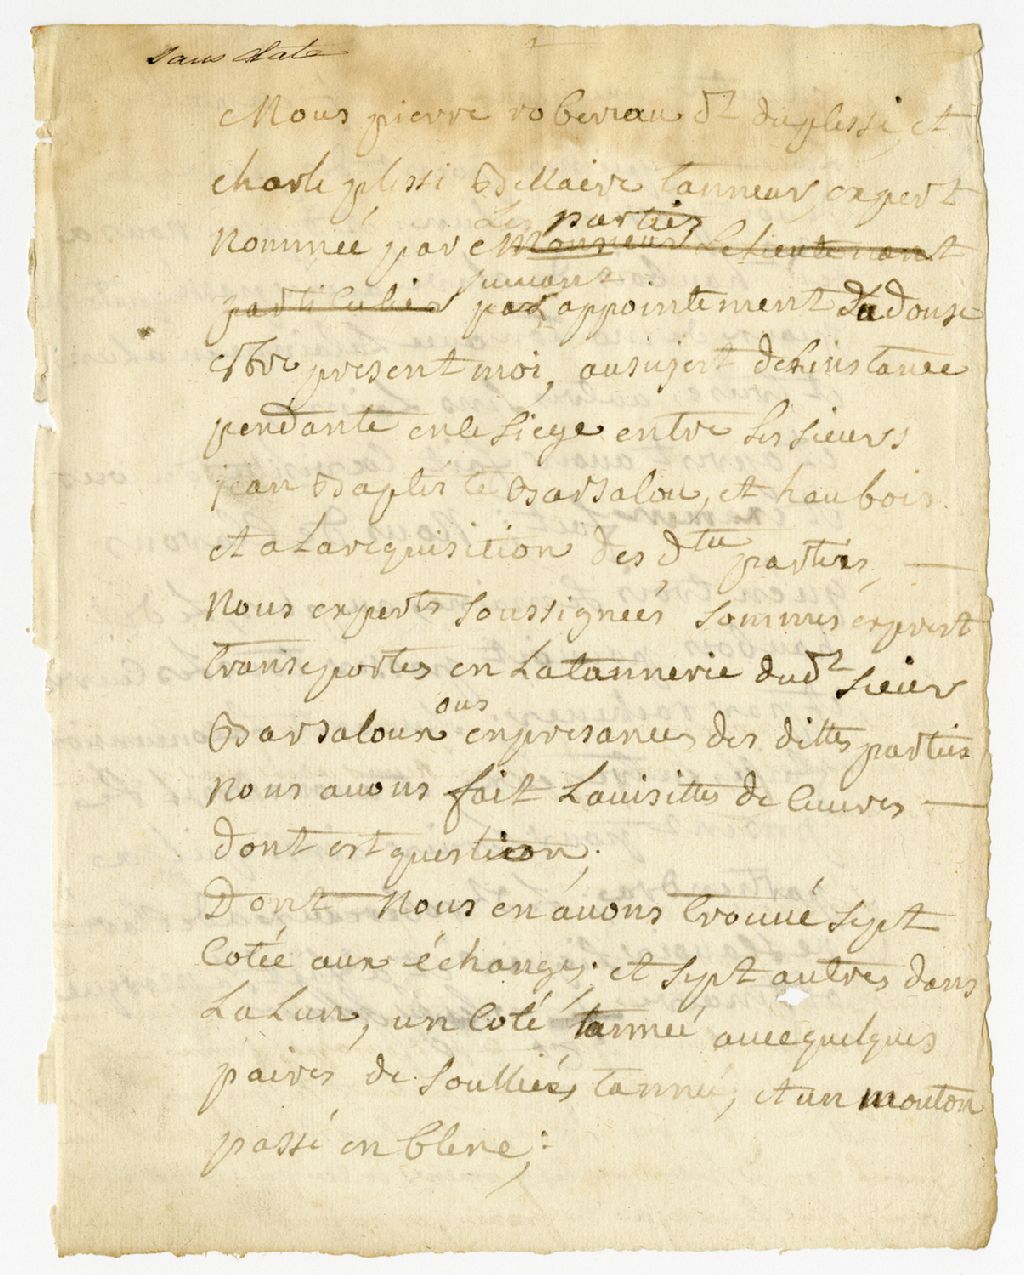 Sans date
Nous pierre robereau dt duplessi, et
charle plessi Bellaire tanneur, expert
les parties
Nommée par Monsieur le lieutenant
suivant
particulier par appointement du douse
presentmoi, ausujest delinstance
pendante enle siege entre les sieurs
jean Baptiste Barsalou, et haubois
et a la requisition des dtes parties,
Nous experts soussignees sommes expert
transsportes en Latannerie dudt sieur
ous
Barsaloux enpresances des dittes parties
Nous auons fait Lauisittes de Cuires
dont est question,
Dont Nous en auons trouué sept
Cotée aux échanges; et sept autres dans
La Lun, un Coté tannée auecquelques
paires de soulliés tanné, et un mouton
passé en blene;